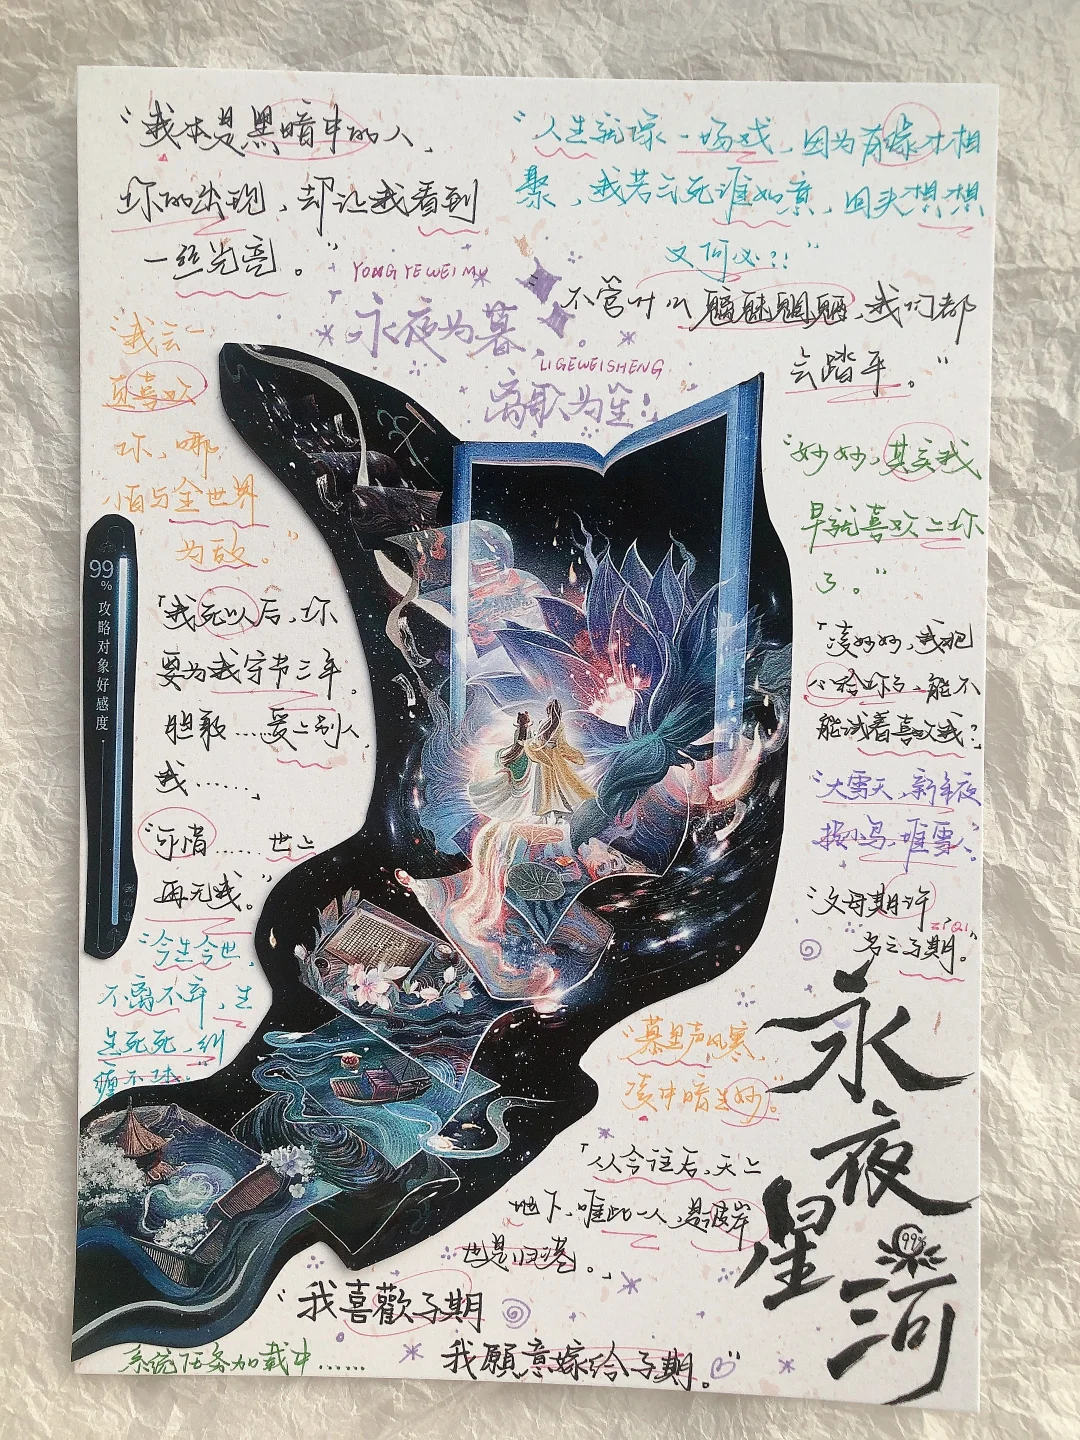 “我本是黑暗中的人，
你的出现，却让我看到
一丝光亮。”
“人生就像一场戏，因为有缘才相
聚，我若气死谁如意，回头想想
又何必？！”
YONG YE WEI MU
「永夜为暮，
LI GE WEI SHENG
离歌为笙！
不管什么魑魅魍魉，我们都
会踏平。”
“我会一
直喜欢
你，哪
怕与全世界
为敌。”
“妙妙，其实我
早就喜欢上你
了。”
99%
攻略对象好感度·
「我死以后，你
要为我守节三年，
胆敢…爱上别人，
我……」
“可惜……世上
再无我。”
「凌妙妙，我把
心给你了，能不
能试着喜欢我？」
“大雪天，新年夜
捉小鸟，堆雪人”
“父母期许
ZI QI
名之子期。”
“今生今世，
不离不弃，生
生死死，纠
缠不休。”
“慕里声风寒，
凌中暗生妙。”
「从今往后，天上
地下，唯此一人，是彼岸
也是归港。」
永夜星河
99%
“我喜歡子期
我願意嫁给子期。”
系统任务加载中……